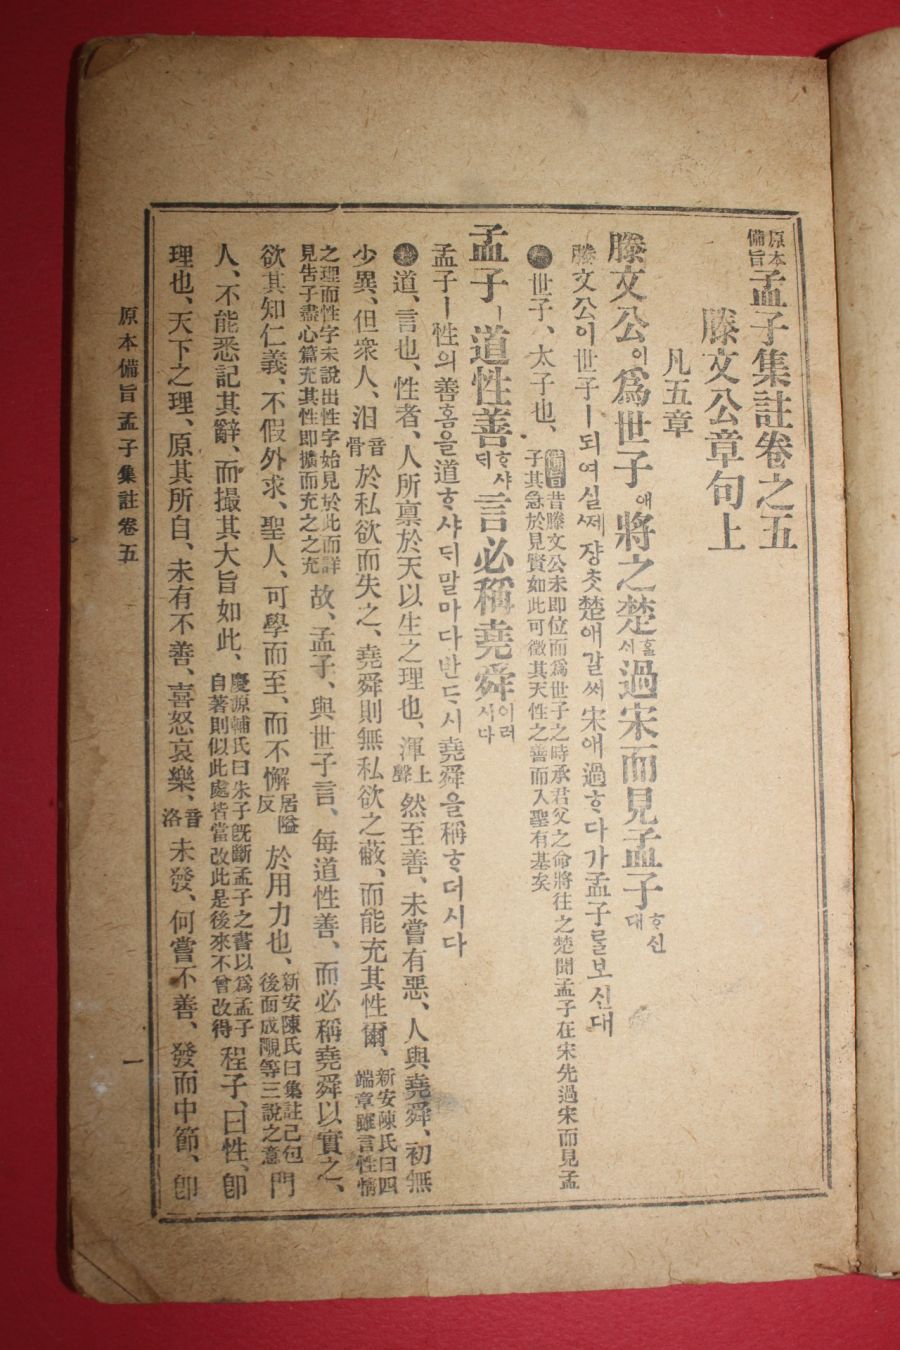 原本備旨孟子集註卷之五
滕文公章句上
凡五章
滕文公이為世子애將之楚ᄒᆞᆯ시過宋而見孟子ᄒᆞ신대
滕文公이世子ㅣ되여실ᄶᅦ쟝ᄎᆞᆺ楚애갈ᄊᆡ宋애過ᄒᆞ다가孟子ᄅᆞᆯ보신대
世子、太子也、備旨昔滕文公未即位而為世子之時承君父之命將往之楚聞孟子在宋先過宋而見孟
子其急於見賢如此可徵其天性之善而入聖有基矣
孟子ㅣ道性善ᄒᆞ샤ᄃᆡ言必稱堯舜이러시다
孟子ㅣ性의善홈을道ᄒᆞ샤ᄃᆡ말마다반ᄃᆞ시堯舜을稱ᄒᆞ더시다
道、言也、性者、人所禀於天以生之理也、渾上聲然至善、未嘗有惡、人與堯舜、初無
少異、但衆人、汨音骨於私欲而失之、堯舜則無私欲之蔽、而能充其性爾、新安陳氏曰四端章雖言性情
之理而性字未說出性字始見於此而詳見告子盡心篇充其性即擴而充之之充故、孟子、與世子言、每道性善、而必稱堯舜以實之、
欲其知仁義、不假外求、聖人、可學而至、而不懈居隘反於用力也、新安陳氏曰集註已包後面成覵等三說之意門
人、不能悉記其辭、而撮其大旨如此、慶源輔氏曰朱子旣斷孟子之書以為孟子自著則似此處皆當改此是後來不曾改得程子、曰性、卽
理也、天下之理、原其所自、未有不善、喜怒哀樂、音洛未發、何嘗不善、發而中節、卽
原本備旨孟子集註卷五
一